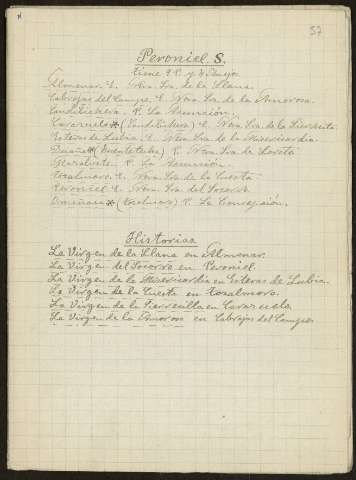 57
Peroniel S.
tiene 9 P. y 3 Anejos
Almenar. E. Ntra. Sra. de la Llana.
Cabrejas del Campo. E. Ntra. Sra. de la Amorosa.
Candilichera. P. La Asunción.
Carazuelo* (Candilichera) E. Ntra. Sra. de la
Esteras de Lubia. E. Ntra. Sra. de la Misericordia.
Duañez* (Fuentetecha) P. Ntra. Sra. de Loreto
P. La Asunción.
Tozalmoro. E. Ntra. Sra. de la Cuesta
Peroniel E. Ntra. Sra. del Socorro
Omeñaca* (Tozalmoro) P. La Concepción.
Historias
La Virgen de la Llana en Almenar.
La Virgen del Socorro en Peroniel.
La Virgen de la Misericordia en Esteras de Lubia.
La Virgen de la Cuesta en Tozalmoro.
La Virgen de la en Carazuelo
La Virgen de la Amorosa en Cabrejas del Campo